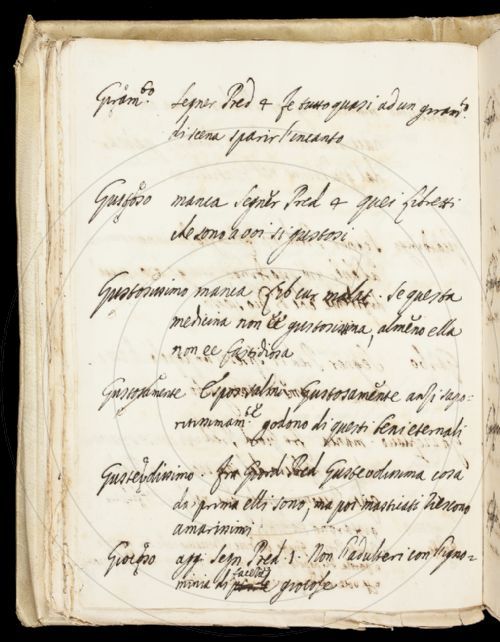 Giram.to Segner Pred 4 fe tutto quasi ad un giram.to
di scena sparir l'incanto
Gustoso manca Segner Pred 4 quei libretti
che sono a voi sì gustosi
Gustosissimo manca Lib cur malat. Se questa
medicina non è gustosissima, almeno ella
non è fastidiosa
Gustosamente Gustosamente anzi sapo-
ritissimam.te godono di questi beni eternali
Gustevolissimo fra Giord Pred Gustevolissima cosa
da prima elli sono, ma poi masticati
amarissimi
Giocoso agg Segn Pred 1. Non l'adulteri con l'igno-
minia di facezie giocose